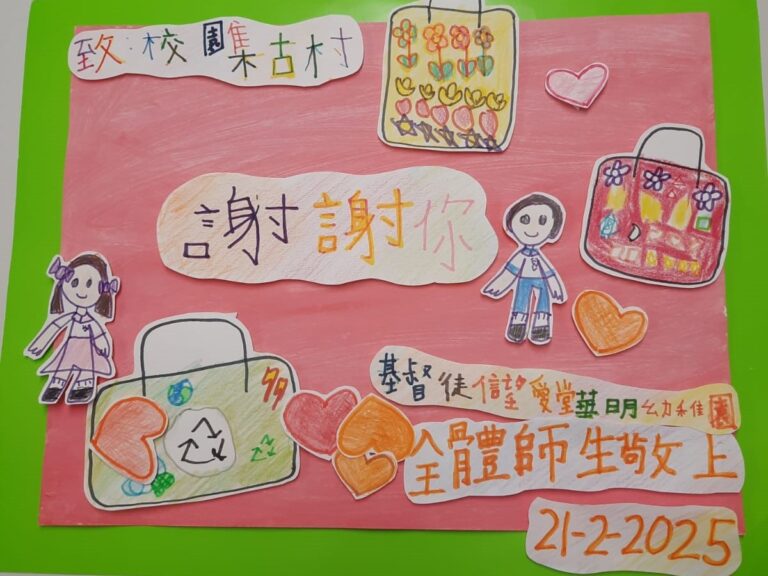 致:校園集古村
謝謝你
基督徒信望愛堂華明幼稚園
全體師生敬上
21-2-2025